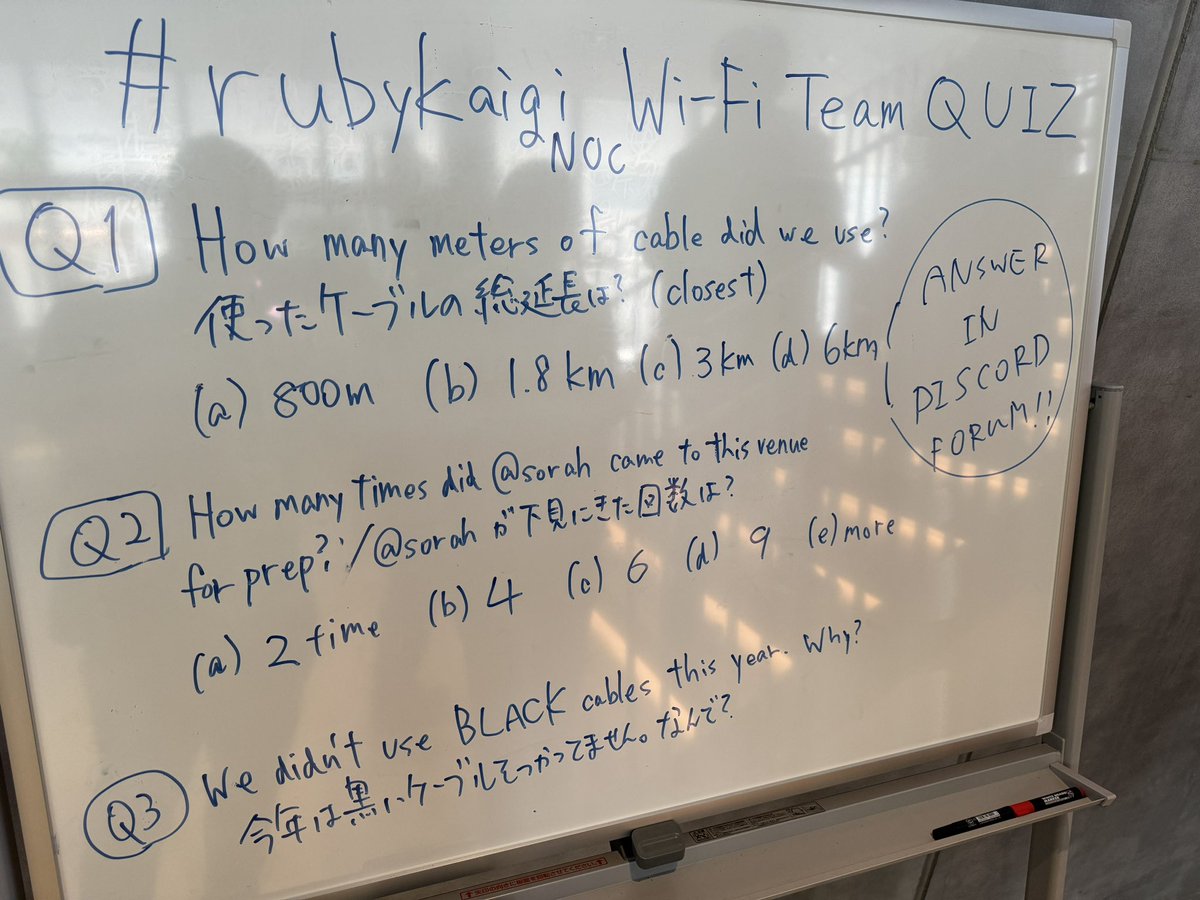 #rubykaigi Wi-Fi Team QUIZ
NOC
Q1 How many meters of cable did we use?
使ったケーブルの総延長は? (closest)
(a) 800m (b) 1.8km (c) 3km (d) 6km
ANSWER
IN
DISCORD
FORUM!!
Q2 How many times did @sorah came to this venue
for prep? / @sorah が下見にきた回数は?
(a) 2 time (b) 4 (c) 6 (d) 9 (e) more
Q3 We didn't use BLACK cables this year. Why?
今年は黒いケーブルをつかってません。なんで?